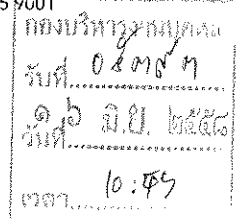 9001
กองบริหารงานบุคคล
รับที่
วันที่ ๑๖ มิ.ย. ๒๕๕๘
เวลา 10:45